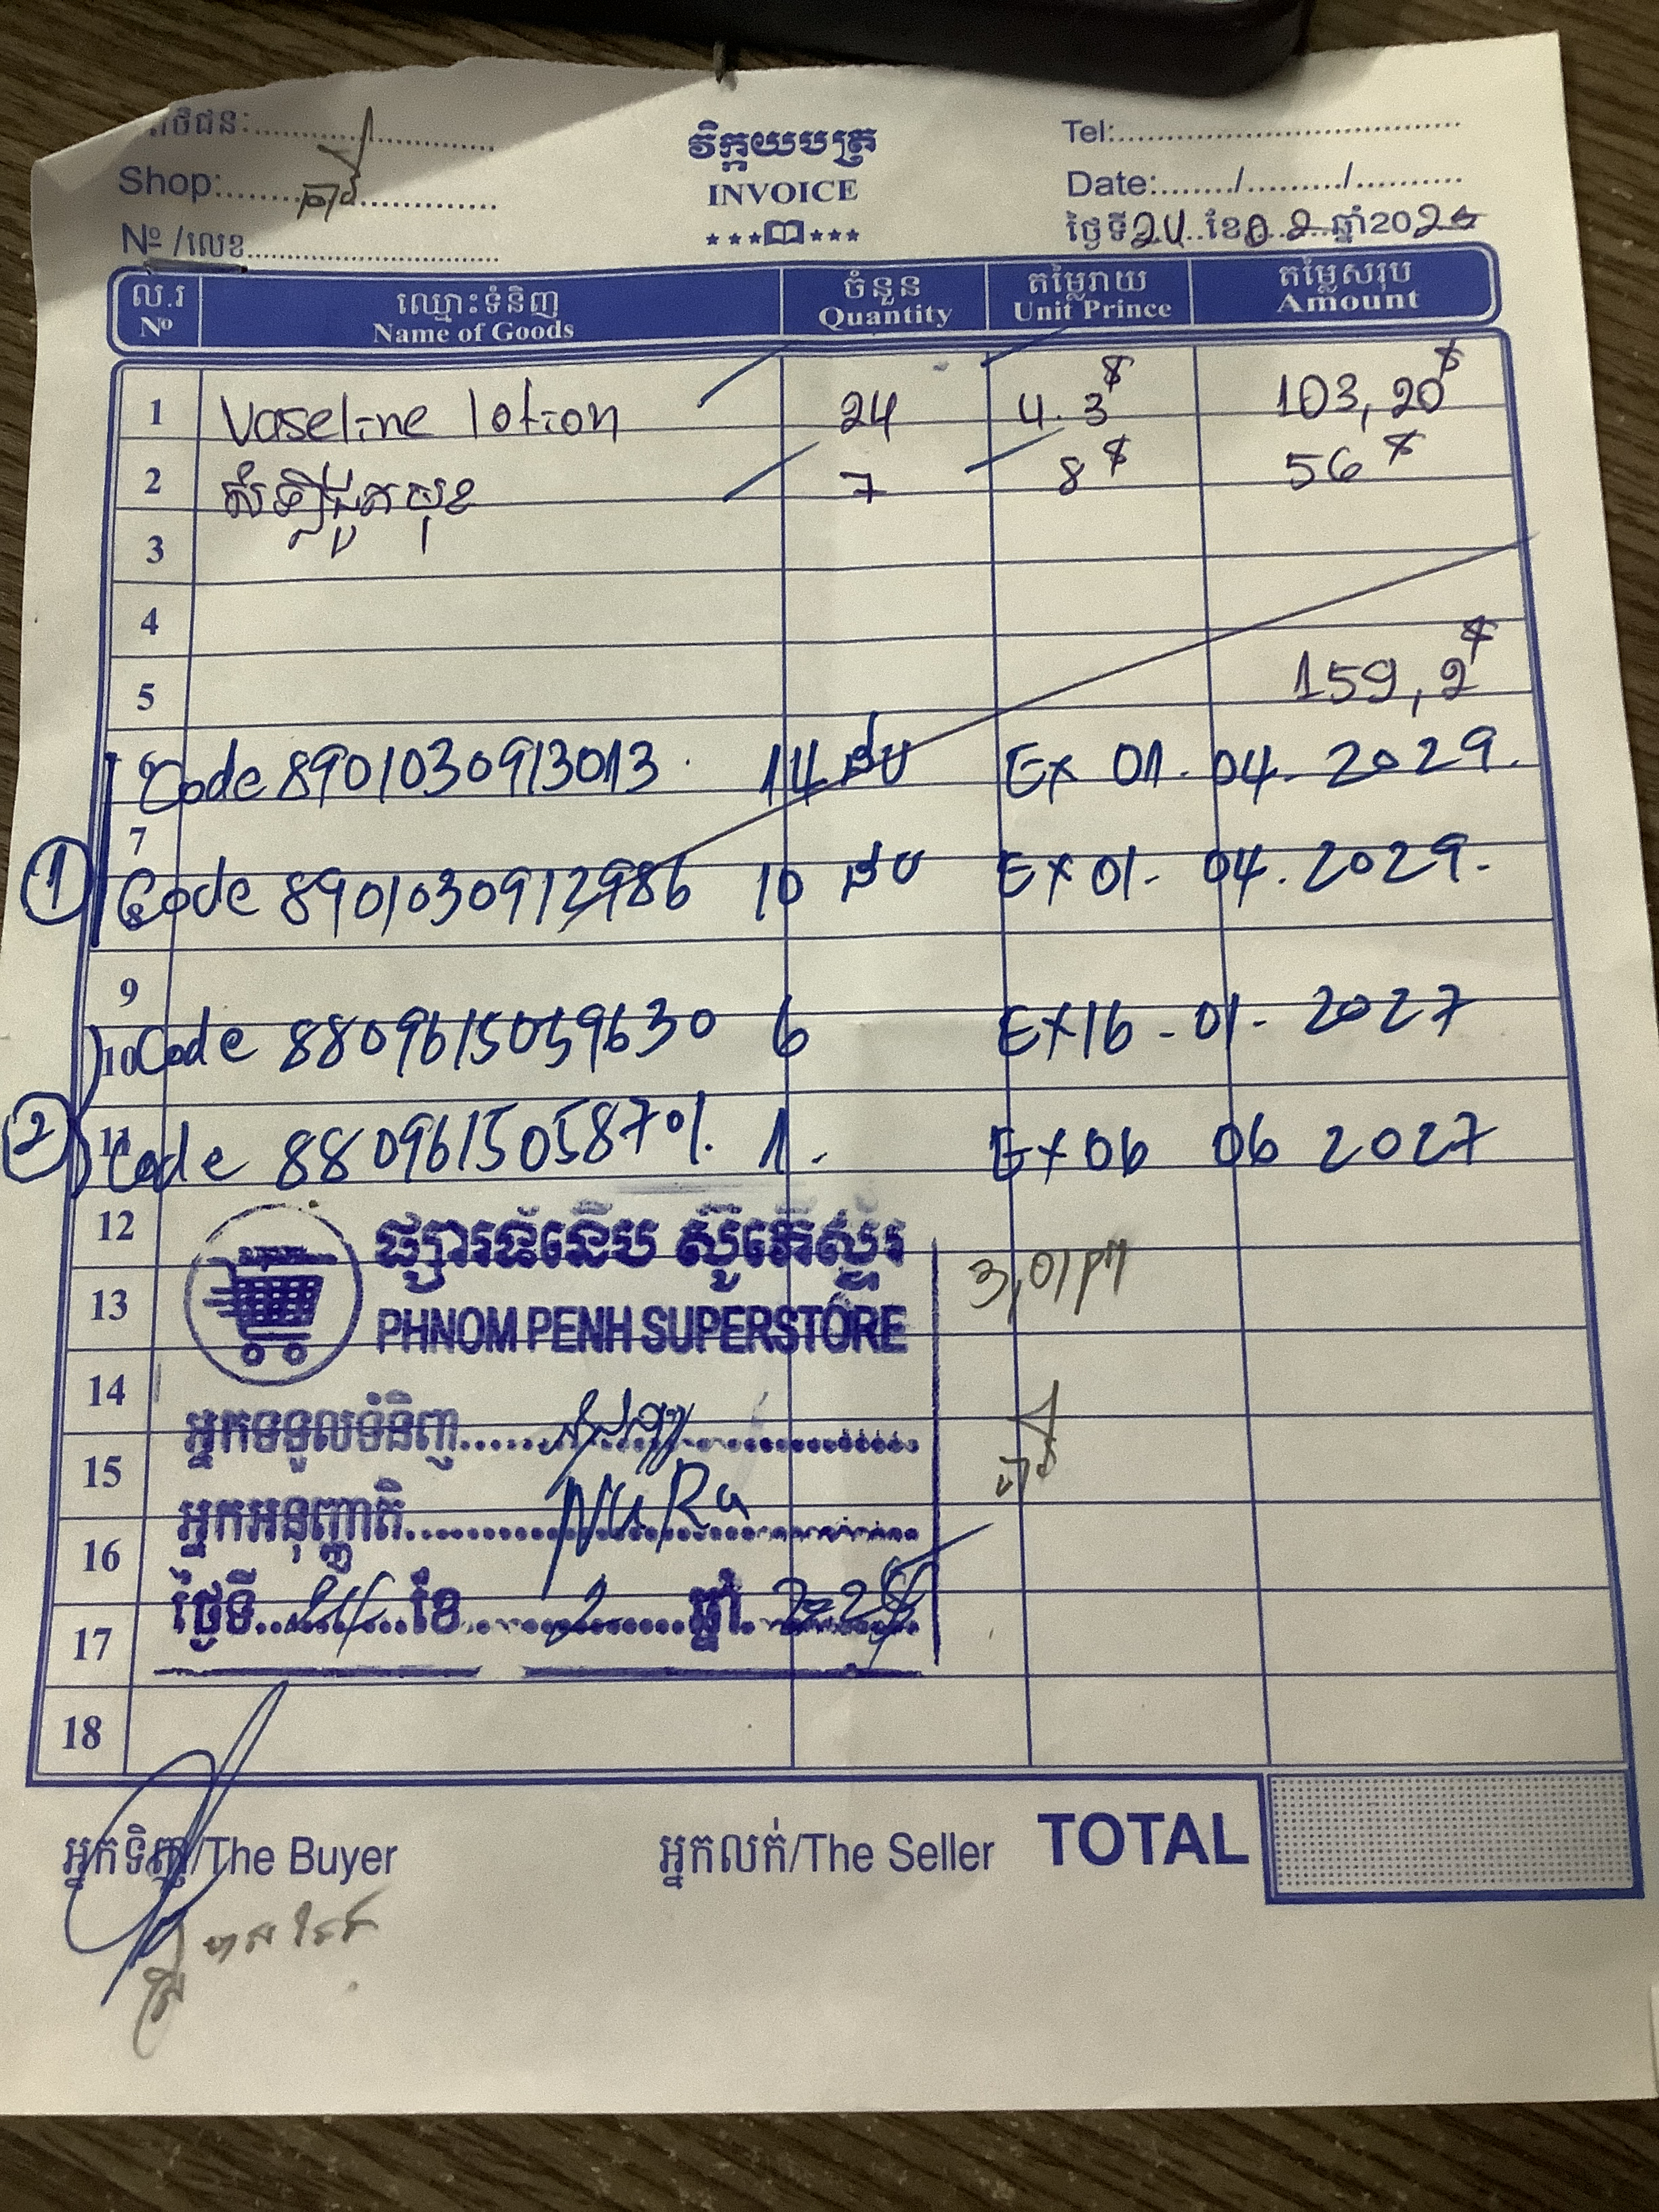 Shop:
វិក្កយបត្រ
INVOICE
Tel:
Date:......./........./..........
Nº /លេខ
ថ្ងៃទី 24 ខែ 02 ឆ្នាំ202
ល.រ ឈ្មោះទំនិញ ចំនួន តម្លៃរាយ តម្លៃសរុប
Nº Name of Goods Quantity Unit Prince Amount
1 Vaseline lotion 24 4.3$ 103,20$
2 សំឡីជូតមុខ 7 8$ 56$
3
4
5 159,2$
6 Code 8901030913013. 14 ដប Ex 01. 04. 2029.
7
8 Code 8901030912986 10 ដប Ex 01- 04. 2029.
① 
9
10 Code 8809615059630 6 Ex 16 - 01 - 2027
② 11 Code 8809615058701. 1. Ex 06 06 2027
12
ផ្សារទំនើប ស៊ូភើស្ទ័រ
13 PHNOM PENH SUPERSTORE 3,01pm
14
អ្នកទទួលទំនិញ
15
អ្នកអនុញ្ញាតិ NU Ra
16
ថ្ងៃទី 24 ខែ 2 ឆ្នាំ
17
18
អ្នកទិញ/The Buyer អ្នកលក់/The Seller TOTAL